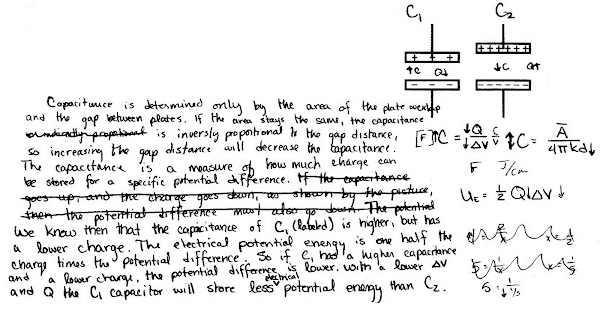 C₁ C₂
+ + + + + + + + +
↑C Q↓ ↓C Q↑
- - - - - - - - -
Capacitance is determined only by the area of the plate overlap
and the gap between plates. If the area stays the same, the capacitance
is inversly proportional to the gap distance,
so increasing the gap distance will decrease the capacitance.
The capacitance is a measure of how much charge can
be stored for a specific potential difference. If the capacitance
goes up, and the charge goes down, as shown by the picture,
then the potential difference must also go down. The potential
We know then that the capacitance of C₁ (labeled) is higher, but has
a lower charge. The electrical potential energy is one half the
charge times the potential difference. So if C₁ had a higher capacitance
and a lower charge, the potential difference is lower. With a lower ΔV
and Q the C₁ capacitor will store less electrical potential energy than C₂.
[F]↑C = ↓Q/↓ΔV C/V ↑C = A/4πkd↓
F J/cm
U_E = ½ Q↓ΔV↓